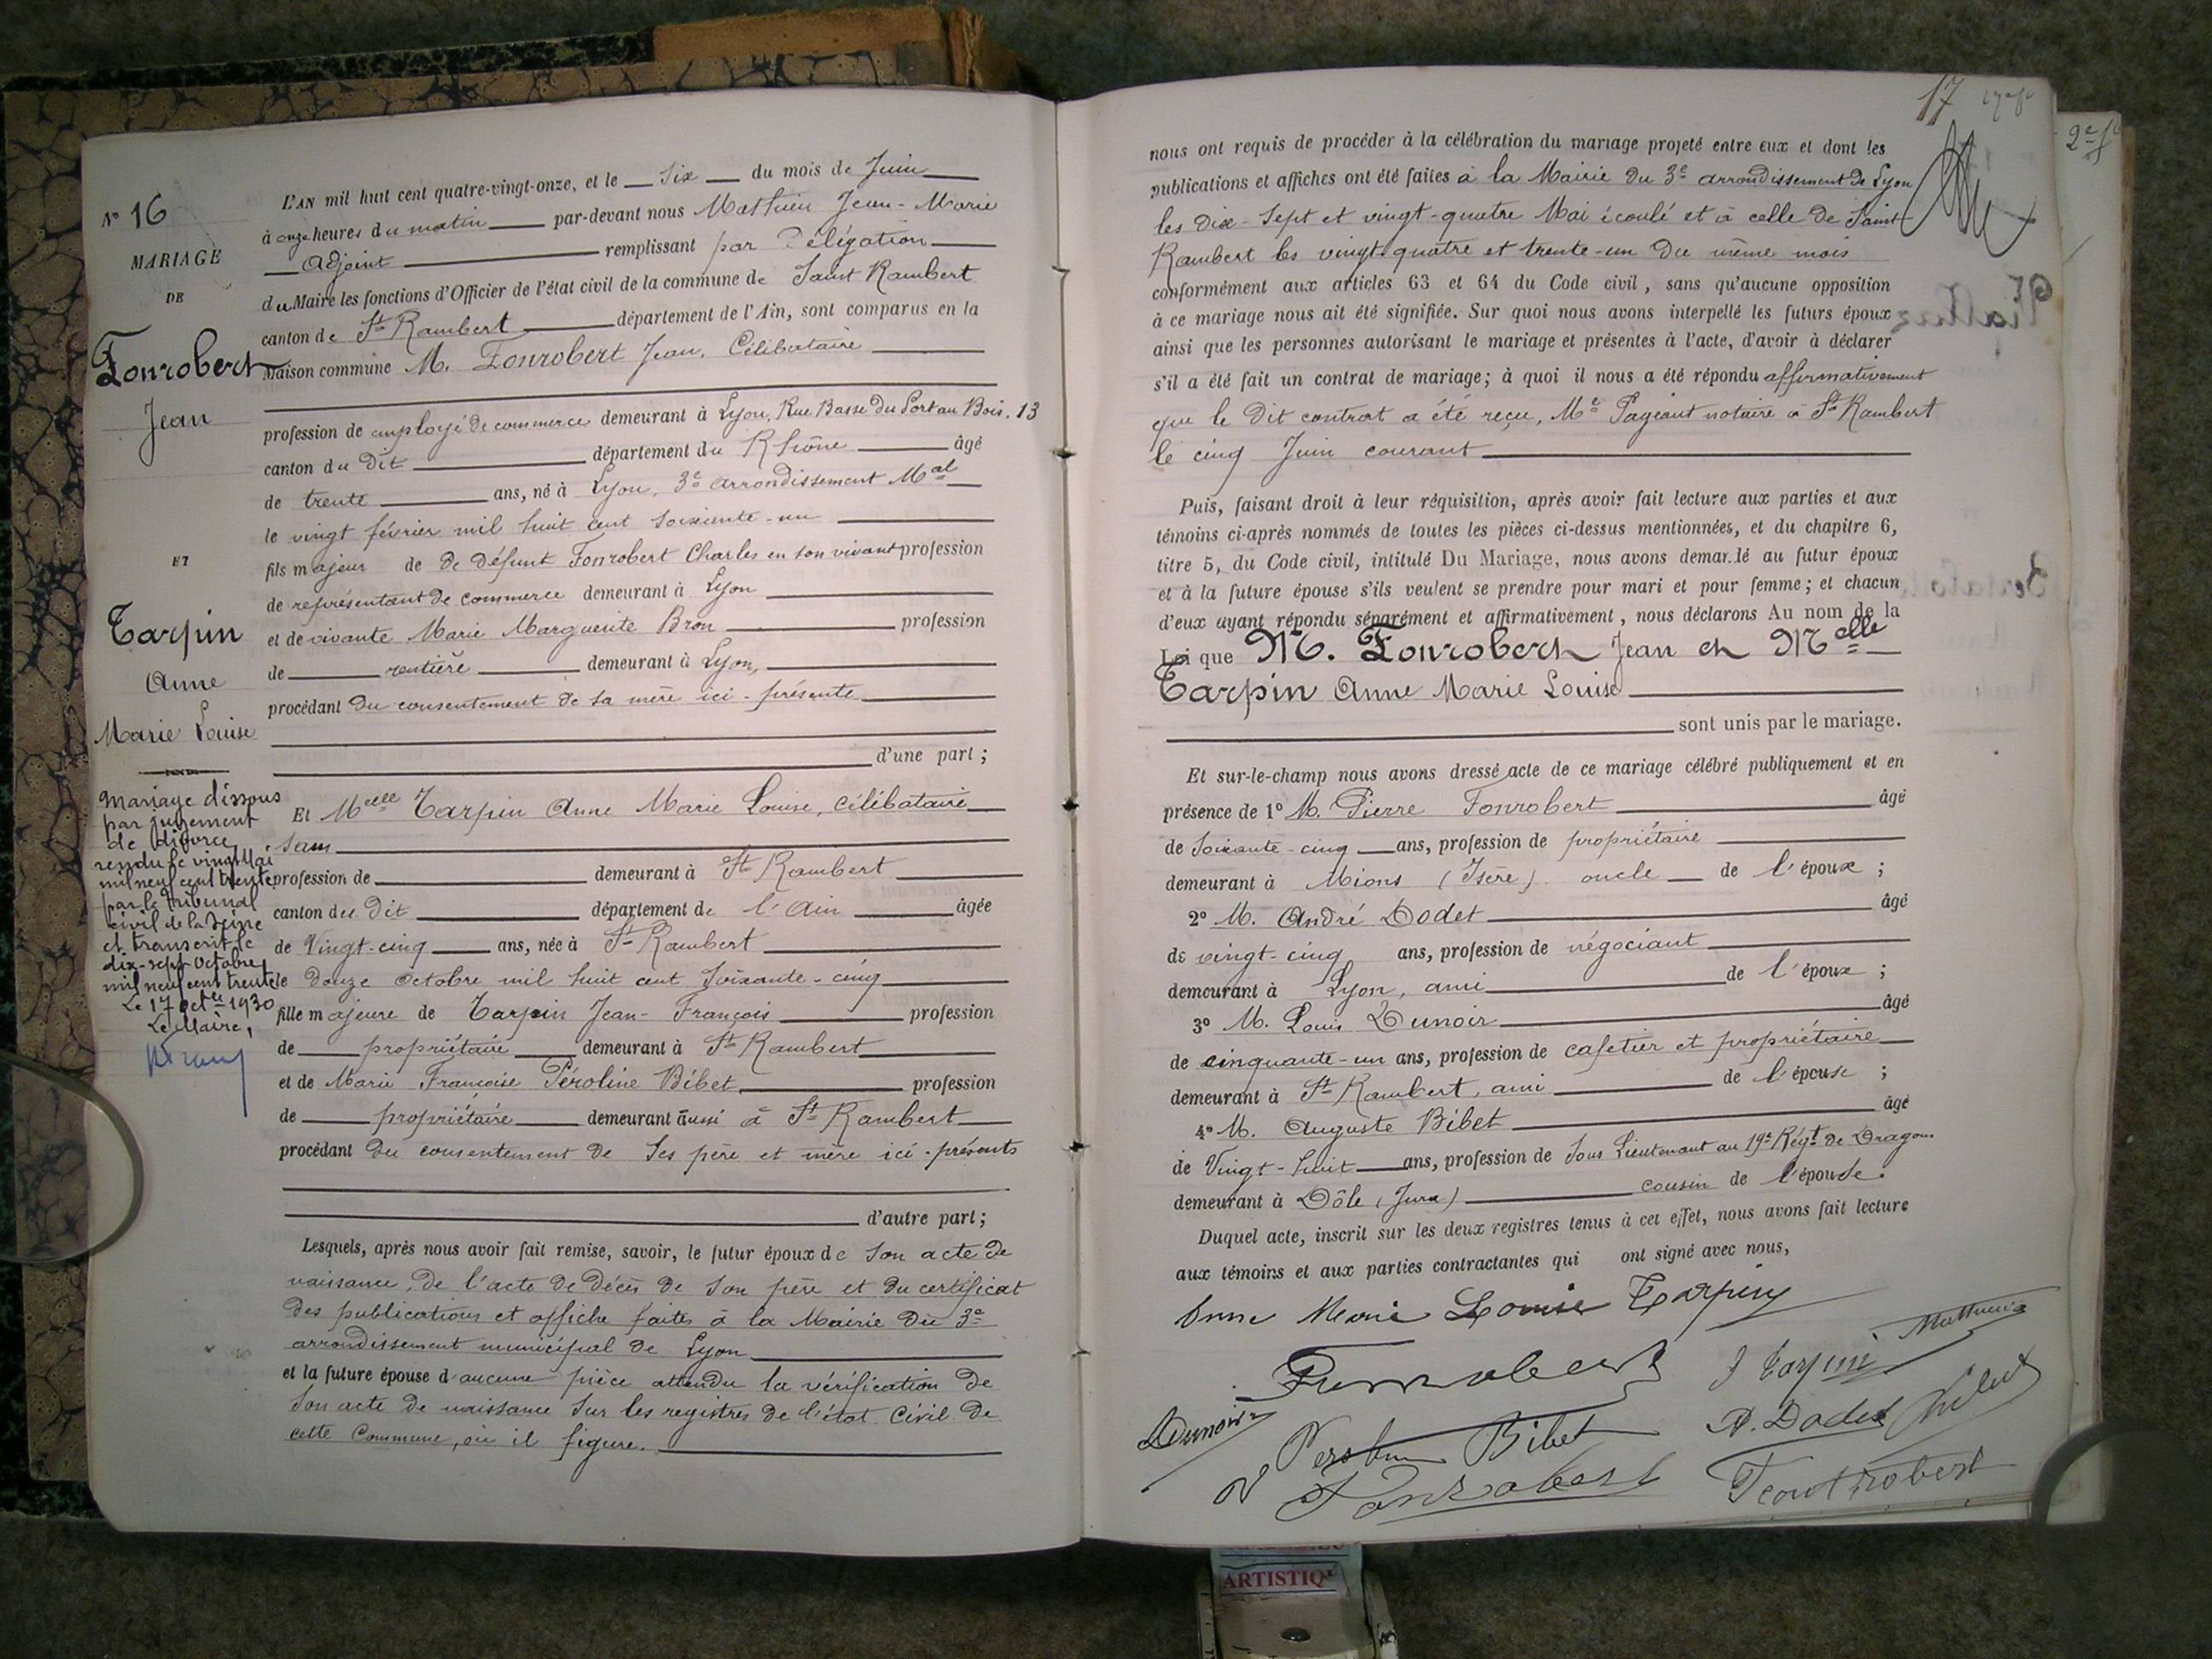 N° 16
MARIAGE
DE
Fonrobert
Jean
ET
Tarpin
Anne
Marie Louise
Mariage dissous
par jugement
de divorce
rendu le vingt Mai
mil neuf cent trente
par le tribunal
civil de la Seine
et transcrit le
dix-sept octobre
mil neuf cent trente
Le 17 Octbre 1930
Le Maire,
L'AN mil huit cent quatre-vingt-onze, et le six du mois de Juin
à onze heures du matin par-devant nous Mathieu Jean-Marie
Adjoint remplissant par Délégation
du Maire les fonctions d'Officier de l'état civil de la commune de Saint Rambert
canton de St Rambert département de l'Ain, sont comparus en la
Maison commune M. Fonrobert Jean, Célibataire
profession de employé de commerce demeurant à Lyon, Rue Basse du Port au Bois, 13
canton du dit département du Rhône âgé
de trente ans, né à Lyon, 3e arrondissement Mal
le vingt février mil huit cent soixante-un
fils majeur de De défunt Fonrobert Charles en son vivant profession
de représentant de commerce demeurant à Lyon
et de vivante Marie Marguerite Bron profession
de rentière demeurant à Lyon,
procédant du consentement de sa mère ici-présente
d'une part ;
Et Melle Tarpin Anne Marie Louise, célibataire
Sans
profession de demeurant à St Rambert
canton du dit département de l'Ain âgée
de Vingt-cinq ans, née à St Rambert
le douze octobre mil huit cent soixante-cinq
fille majeure de Tarpin Jean-François profession
de propriétaire demeurant à St Rambert
et de Marie Françoise Péroline Bibet profession
de propriétaire demeurant aussi à St Rambert
procédant du consentement de ses père et mère ici-présents
d'autre part ;
Lesquels, après nous avoir fait remise, savoir, le futur époux de son acte de
naissance, de l'acte de décès de son père et du certificat
des publications et affiche faites à la Mairie du 3e
arrondissement municipal de Lyon
et la future épouse d'aucune pièce attendu la vérification de
son acte de naissance sur les registres de l'état civil de
cette Commune, où il figure.
17
2e f
nous ont requis de procéder à la célébration du mariage projeté entre eux et dont les
publications et affiches ont été faites à la Mairie du 3e arrondissement de Lyon
les dix-sept et vingt-quatre Mai écoulé et à celle de Saint
Rambert les vingt-quatre et trente-un du même mois
conformément aux articles 63 et 64 du Code civil, sans qu'aucune opposition
à ce mariage nous ait été signifiée. Sur quoi nous avons interpellé les futurs époux
ainsi que les personnes autorisant le mariage et présentes à l'acte, d'avoir à déclarer
s'il a été fait un contrat de mariage; à quoi il nous a été répondu affirmativement
que le dit contrat a été reçu, Me Pageaut notaire à St Rambert
le cinq Juin courant
Puis, faisant droit à leur réquisition, après avoir fait lecture aux parties et aux
témoins ci-après nommés de toutes les pièces ci-dessus mentionnées, et du chapitre 6,
titre 5, du Code civil, intitulé Du Mariage, nous avons demandé au futur époux
et à la future épouse s'ils veulent se prendre pour mari et pour femme; et chacun
d'eux ayant répondu séparément et affirmativement, nous déclarons Au nom de la
Loi que M. Fonrobert Jean et Melle
Tarpin Anne Marie Louise
sont unis par le mariage.
Et sur-le-champ nous avons dressé acte de ce mariage célébré publiquement et en
présence de 1° M. Pierre Fonrobert âgé
de soixante-cinq ans, profession de propriétaire
demeurant à Mions (Isère) oncle de l'époux ;
2° M. André Dodet âgé
de vingt-cinq ans, profession de négociant
demeurant à Lyon, ami de l'époux ;
3° M. Louis Dunoir âgé
de cinquante-un ans, profession de cafetier et propriétaire
demeurant à St Rambert, ami de l'épouse ;
4° M. Auguste Bibet âgé
de Vingt-huit ans, profession de Sous Lieutenant au 19e Régt de Dragons
demeurant à Dôle (Jura) cousin de l'épouse.
Duquel acte, inscrit sur les deux registres tenus à cet effet, nous avons fait lecture
aux témoins et aux parties contractantes qui ont signé avec nous,
Anne Marie Louise Tarpin
Mathieu
Fonrobert J Tarpin
LDunoir Péroline Bibet A. Dodet Bibet
Fonrobert Fontrobert
ARTISTIQ